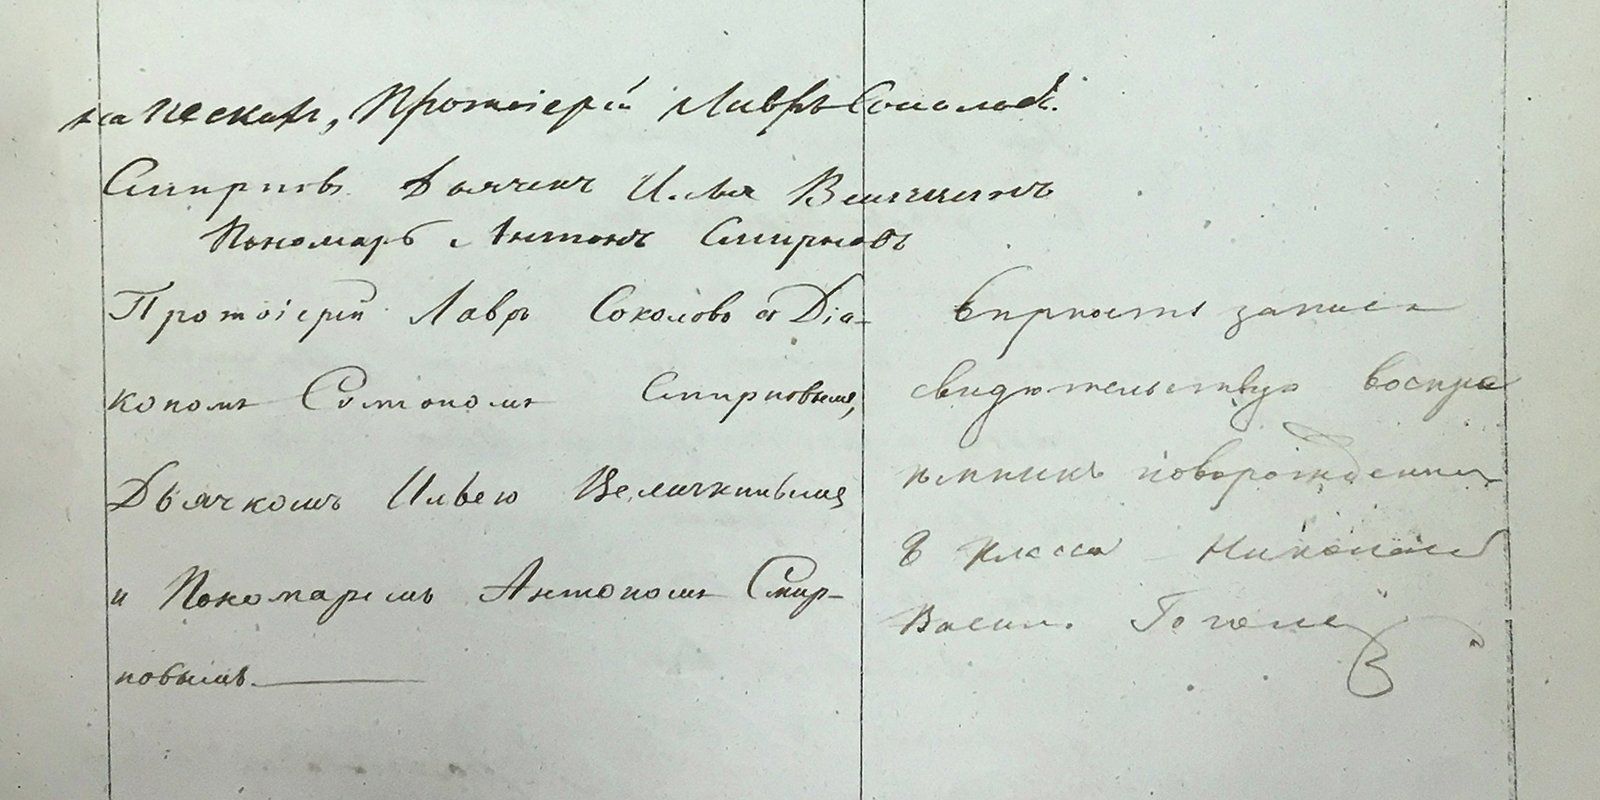 на Пескахъ, Протоіерей Лавръ Соколов.
Смирновъ Дьячекъ Илья Величкинъ
Пономарь Антонъ Смирновъ
Протоіерей Лавръ Соколовъ съ Діа-
кономъ Смирновымъ,
Дьячкомъ Ильею Величкинымъ
и Пономаремъ Антономъ Смир-
новымъ.
Верность записи
свидѣтельствую воспрі
емникъ новорожденнаго
8 класса Николай
Васил. Гоголь